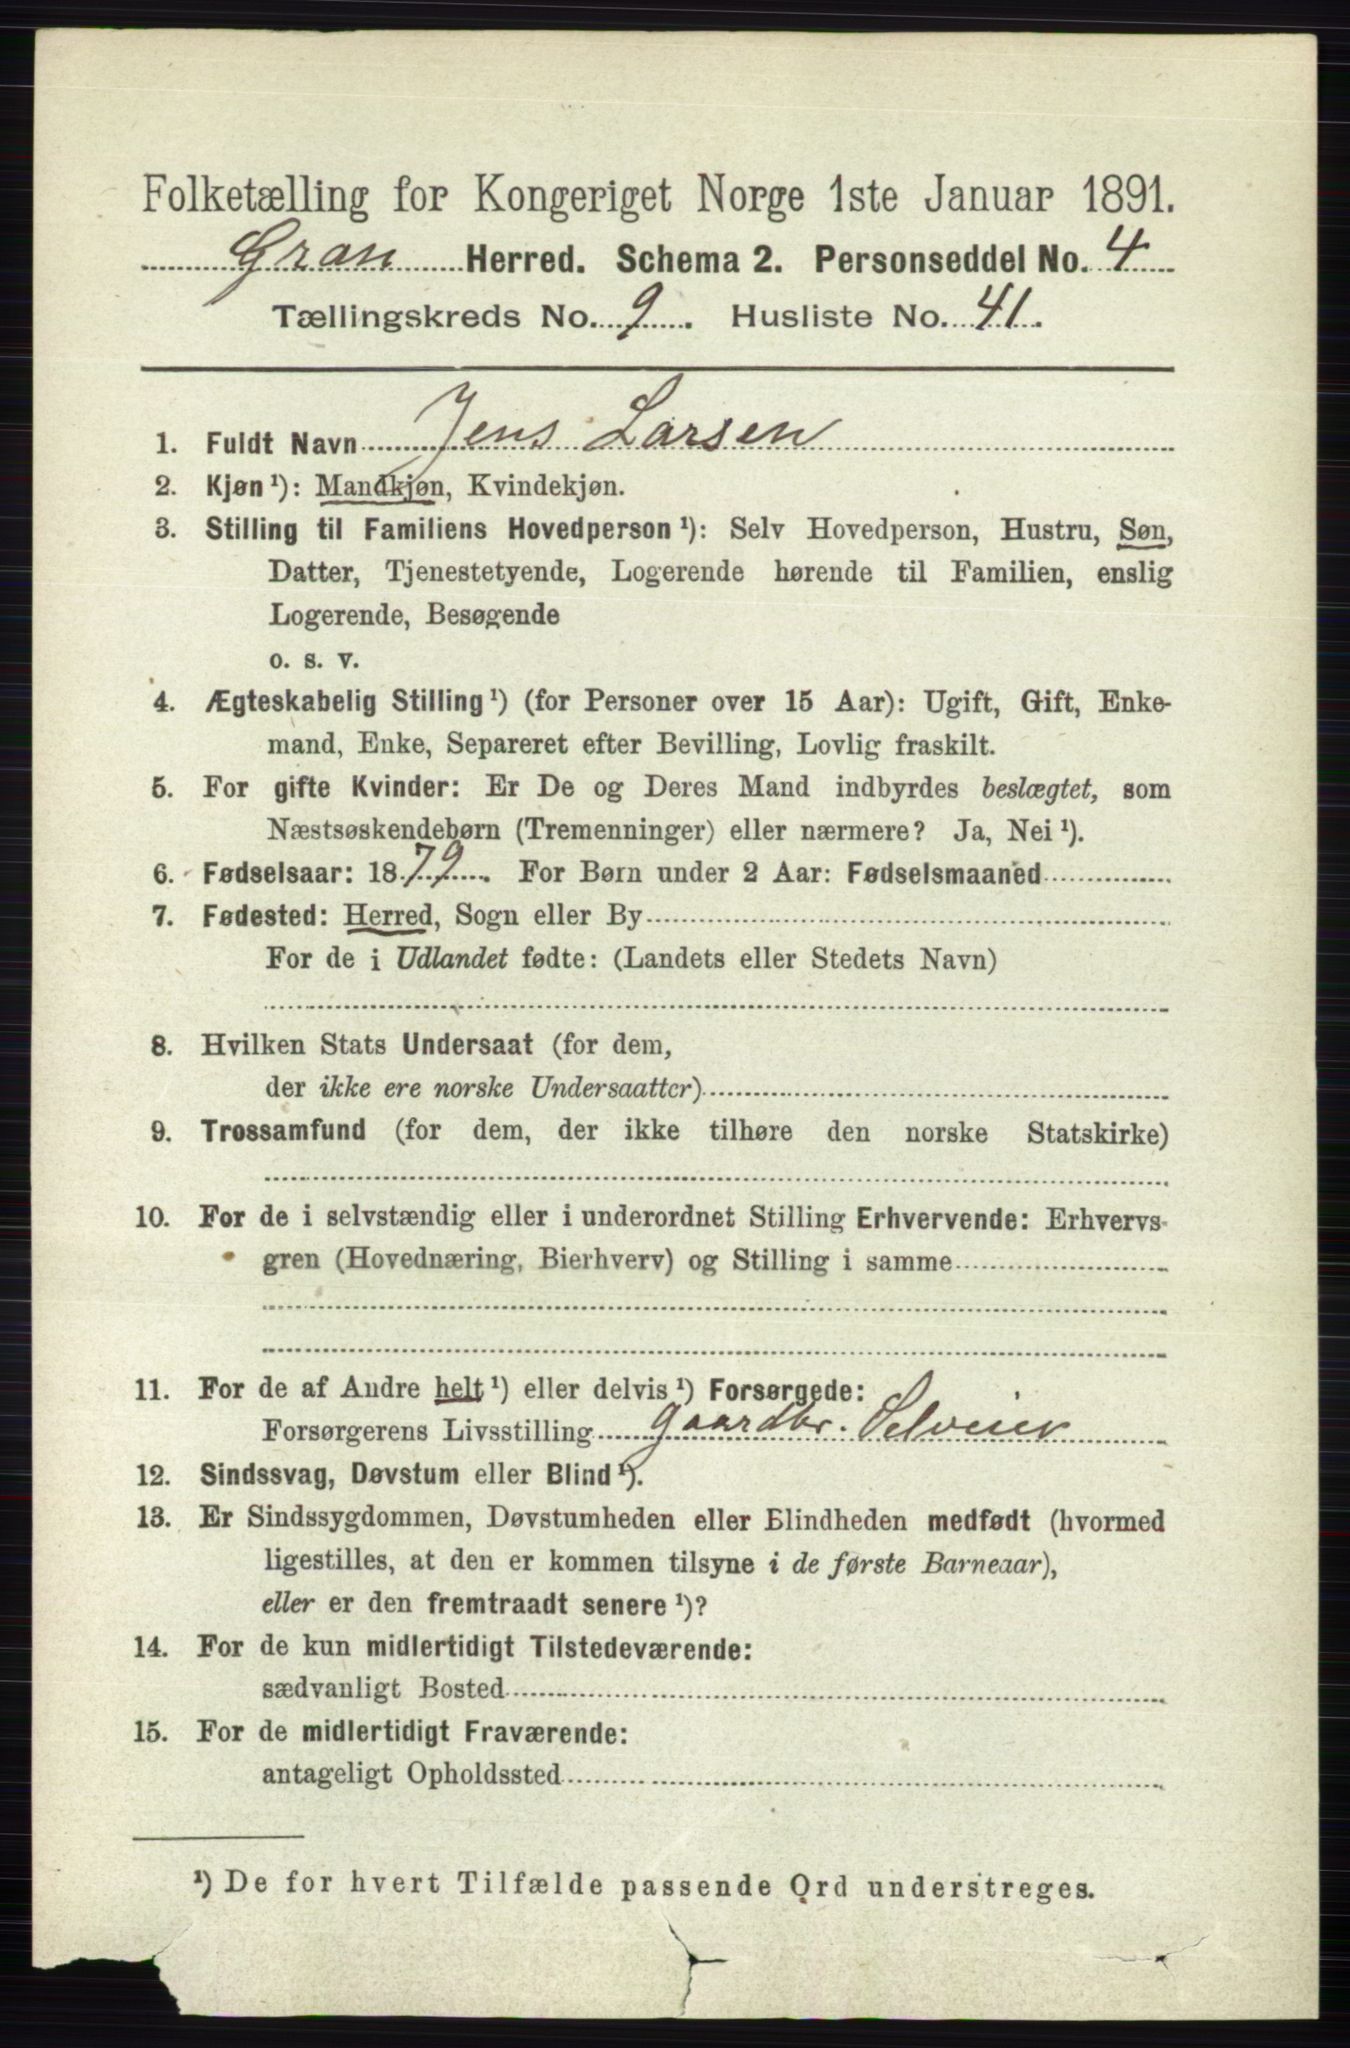 Folketælling for Kongeriget Norge 1ste Januar 1891.
Gran Herred. Schema 2. Personseddel No. 4
Tællingskreds No. 9. Husliste No. 41.
1. Fuldt Navn Jens Larsen
2. Kjøn ¹): Mandkjøn, Kvindekjøn.
3. Stilling til Familiens Hovedperson ¹): Selv Hovedperson, Hustru, Søn,
Datter, Tjenestetyende, Logerende hørende til Familien, enslig
Logerende, Besøgende
o. s. v.
4. Ægteskabelig Stilling ¹) (for Personer over 15 Aar): Ugift, Gift, Enke-
mand, Enke, Separeret efter Bevilling, Lovlig fraskilt.
5. For gifte Kvinder: Er De og Deres Mand indbyrdes beslægtet, som
Næstsøskendebørn (Tremenninger) eller nærmere? Ja, Nei ¹).
6. Fødselsaar: 1879. For Børn under 2 Aar: Fødselsmaaned
7. Fødested: Herred, Sogn eller By
For de i Udlandet fødte: (Landets eller Stedets Navn)
8. Hvilken Stats Undersaat (for dem,
der ikke ere norske Undersaatter)
9. Trossamfund (for dem, der ikke tilhøre den norske Statskirke)
10. For de i selvstændig eller i underordnet Stilling Erhvervende: Erhvervs-
gren (Hovednæring, Bierhverv) og Stilling i samme
11. For de af Andre helt ¹) eller delvis ¹) Forsørgede:
Forsørgerens Livsstilling gaardbr. Selveier
12. Sindssvag, Døvstum eller Blind ¹).
13. Er Sindssygdommen, Døvstumheden eller Blindheden medfødt (hvormed
ligestilles, at den er kommen tilsyne i de første Barneaar),
eller er den fremtraadt senere ¹)?
14. For de kun midlertidigt Tilstedeværende:
sædvanligt Bosted
15. For de midlertidigt Fraværende:
antageligt Opholdssted
¹) De for hvert Tilfælde passende Ord understreges.